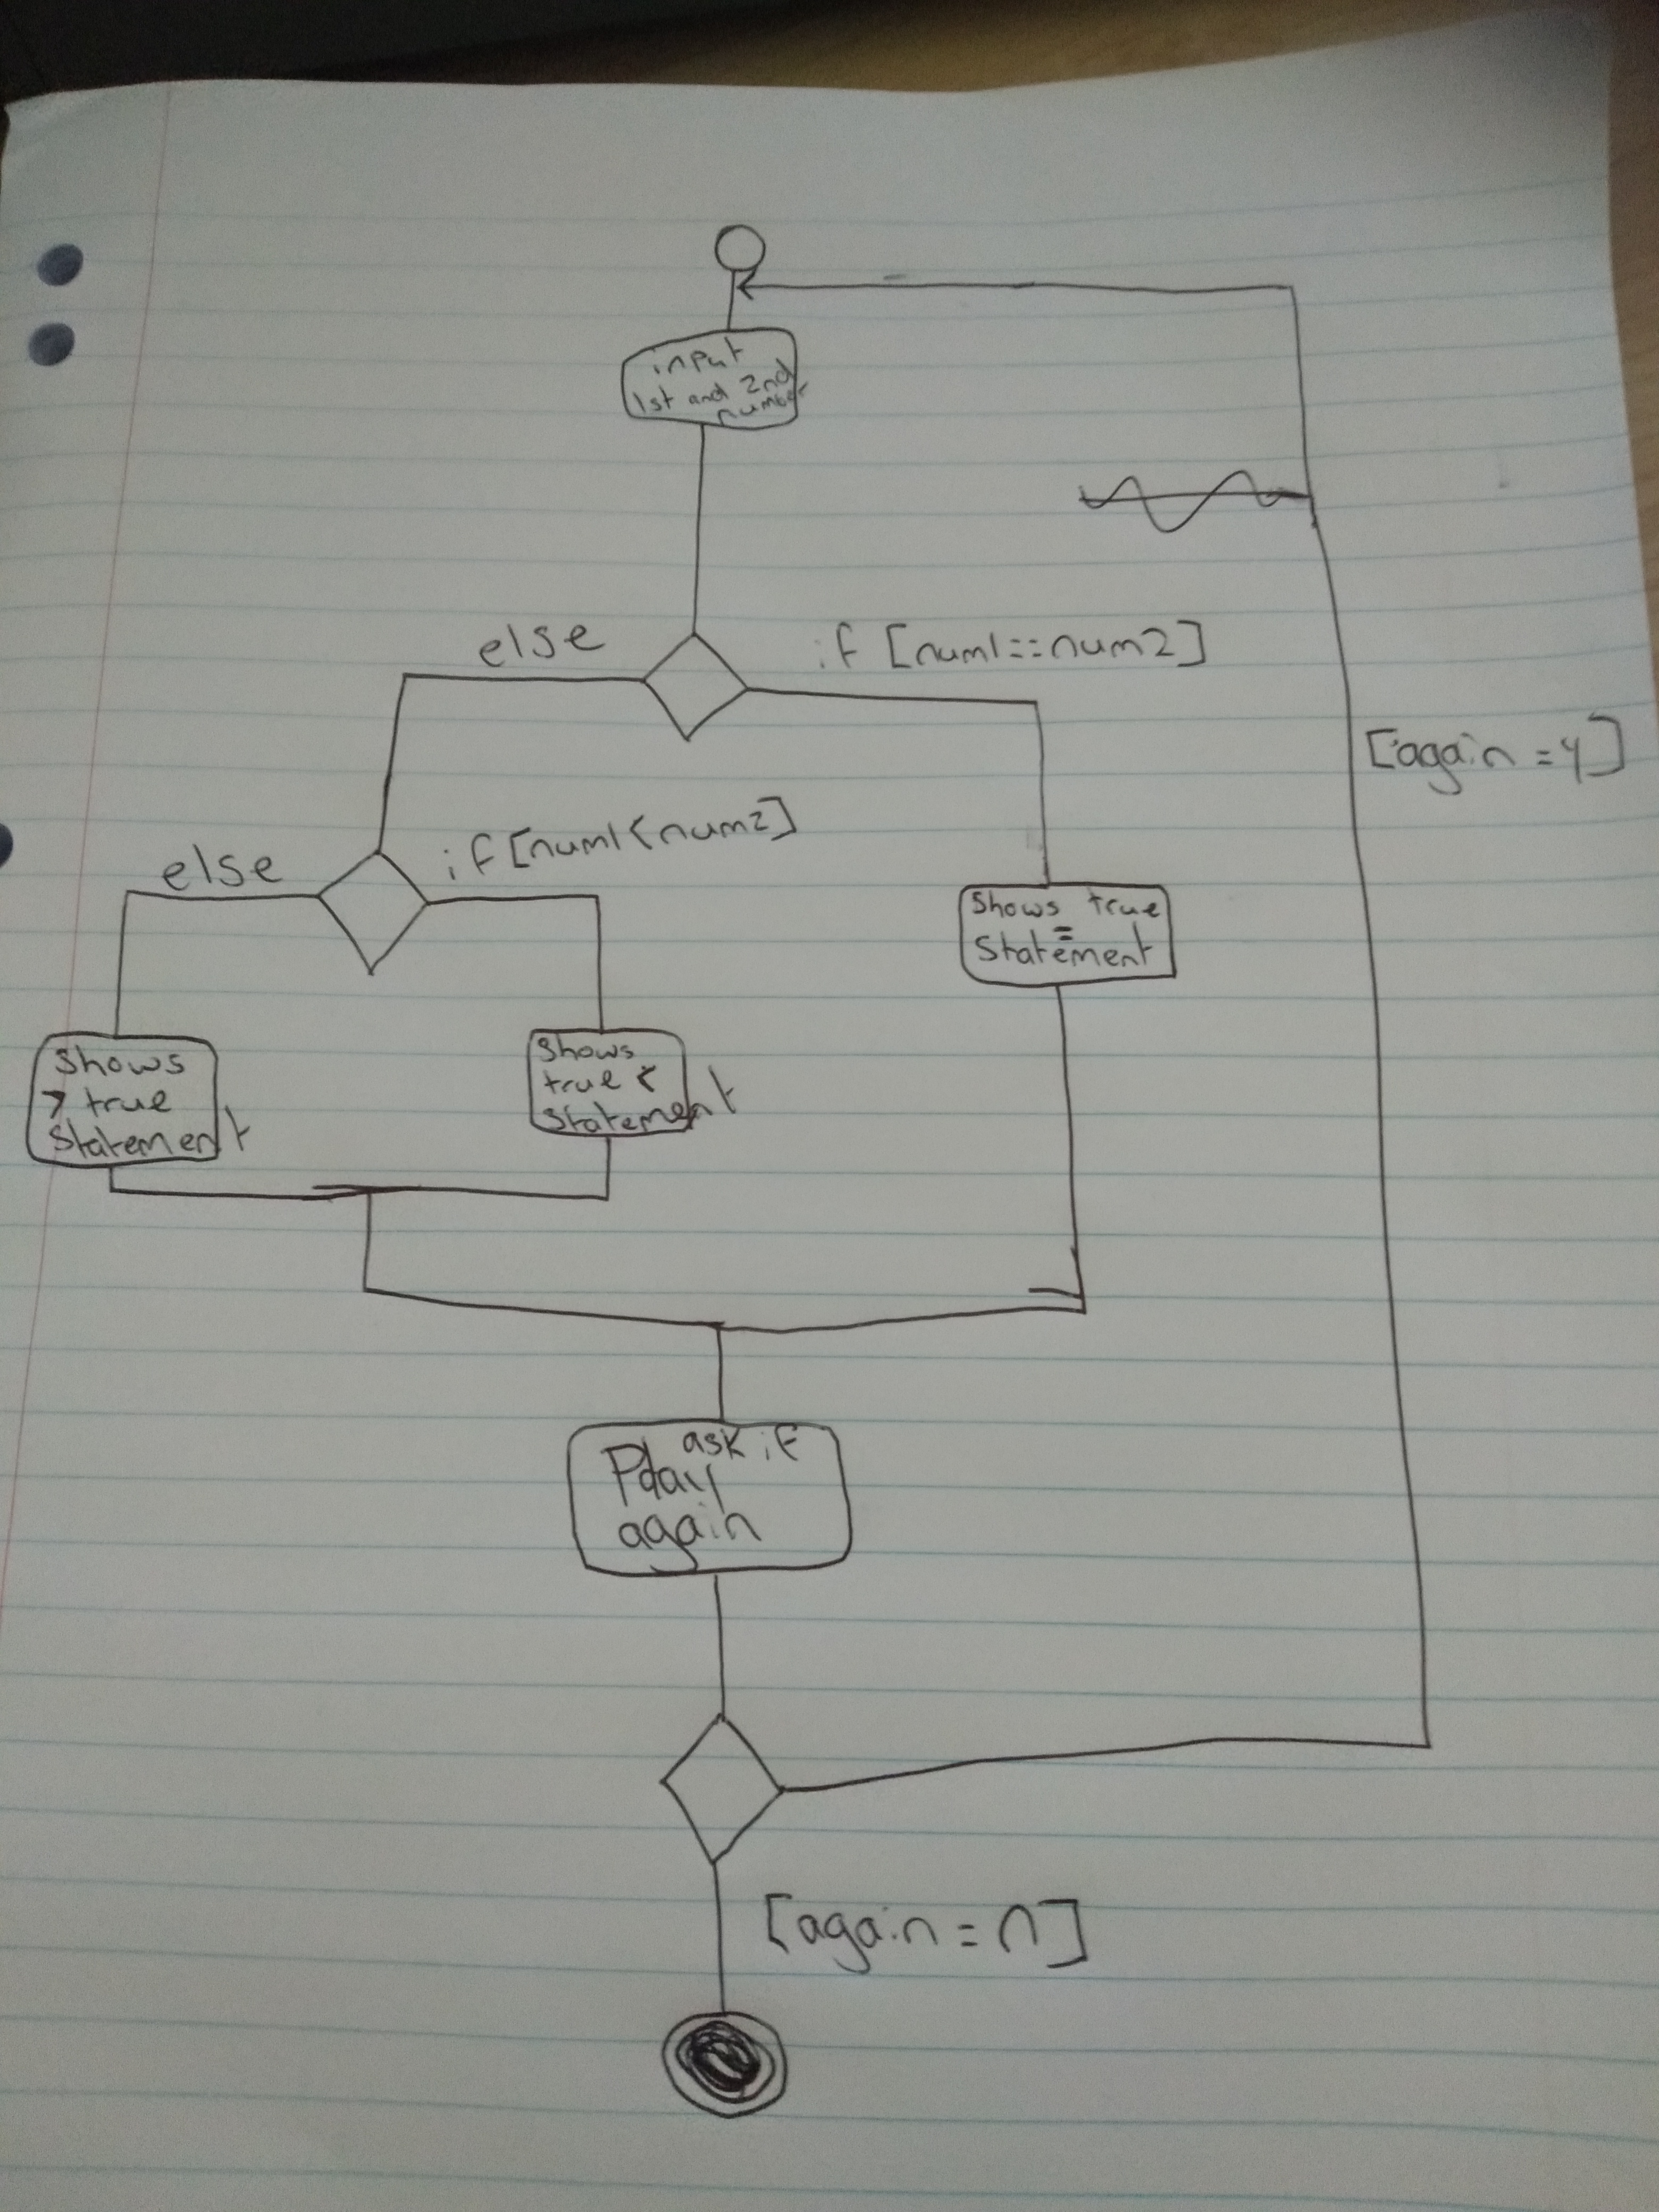 input
1st and 2nd
number
else
if [num1==num2]
[again=y]
else
if [num1<num2]
Shows true
=
Statement
Shows
> true
Statement
Shows
true <
Statement
ask if
Play
again
[again=n]